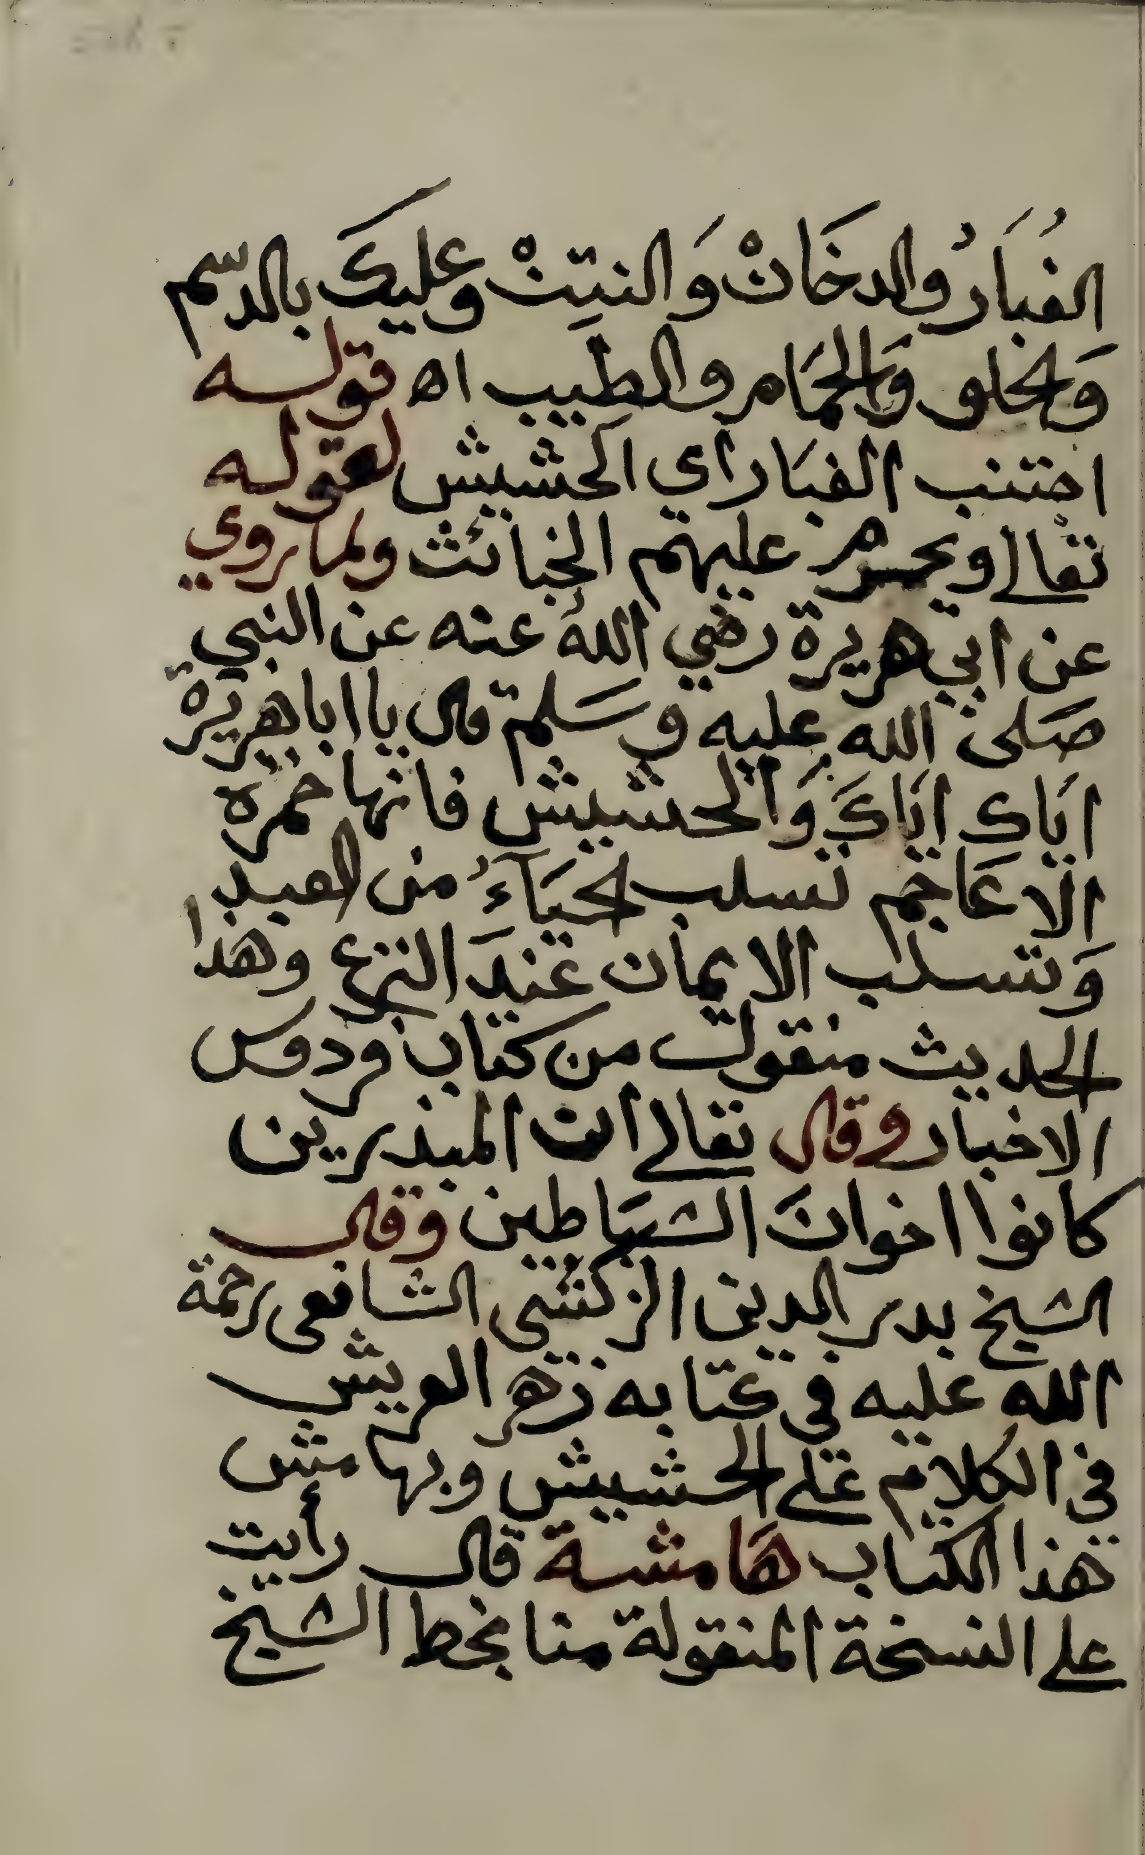 الغُبَارُ والدخَانْ وَالنتِنْ وعليكَ بالدسّم
وَالحلو وَالحمَّام والطيب اه قوله
اجتنب الغبار أي الحشيش لقوله
تعالى ويحرم عليهم الخبائث ولما روي
عن ابي هريرة رضي اللهُ عنه عن النبي
صَلى الله عليه وسَلم قال يا ابا هريرة
ايَاك ايَاكَ وَالحشيش فانها خمرة
الاعَاجم تسلب الحيَآءُ من العبد
وَتسلب الايمان عندَ النزع وهذا
الحديث منقول من كتاب فردوس
الاخبار وقال تعالى ان المبذرين
كانوا اخوانَ الشيَاطين وقال
الشيخ بدر الدين الزركشي الشافعي رحمة
الله عليه في كتابه زهر العريش
في الكلام على الحشيش وبهامش
هذا الكتاب هَامشة قال رأيت
على النسخة المنقولة منا بخط الشيخ